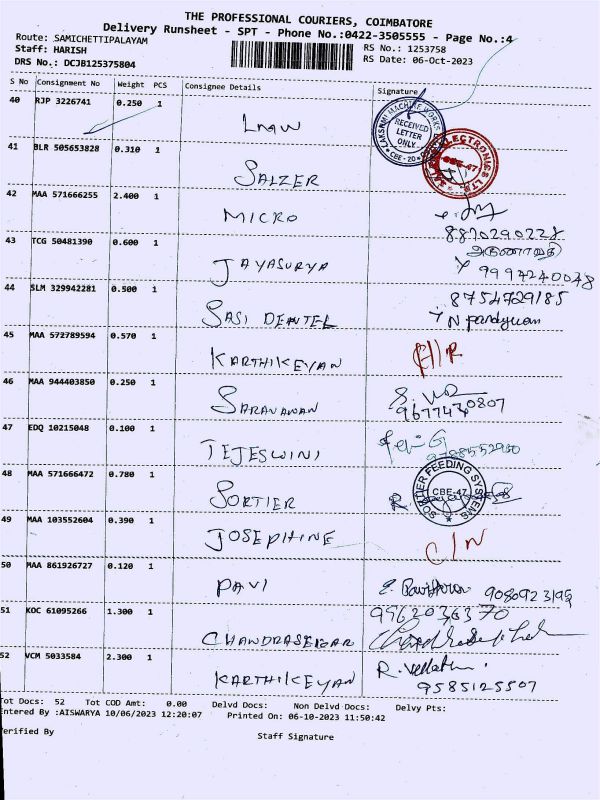 THE PROFESSIONAL COURIERS, COIMBATORE
Delivery Runsheet - SPT - Phone No.:0422-3505555 - Page No.:4
Route: SAMICHETTIPALAYAM
Staff: HARISH RS No.: 1253758
DRS No.: DCJB125375804 RS Date: 06-Oct-2023
S No Consignment No Weight PCS Consignee Details Signature
40 RJP 3226741 0.250 1 LMW
RECEIVED LETTER ONLY CBE-20
41 BLR 505653828 0.310 1 SALZER
ELECTRONICS LTD CBE-47
42 MAA 571666255 2.400 1 MICRO
8870290228
43 TCG 50481390 0.600 1 JAYASURYA
9994240048
44 SLM 329942281 0.500 1 SASI DENTEL
8754729185
N Pandiyan
45 MAA 572789594 0.570 1 KARTHIKEYAN
46 MAA 944403850 0.250 1 SARAVANAN
47 EDQ 10215048 0.100 1 TEJESWINI
48 MAA 571666472 0.780 1 SORTIER
SORTIER FEEDING SYSTEMS CBE-47
49 MAA 103552604 0.390 1 JOSEPHINE C/N
50 MAA 861926727 0.120 1 PAVI
51 KOC 61095266 1.300 1 CHANDRASEKAR
52 VCM 5033584 2.300 1 KARTHIKEYAN
9585125507
Tot Docs: 52 Tot COD Amt: 0.00 Delvd Docs: Non Delvd Docs: Delvy Pts:
Entered By :AISWARYA 10/06/2023 12:20:07 Printed On: 06-10-2023 11:50:42
Verified By
Staff Signature